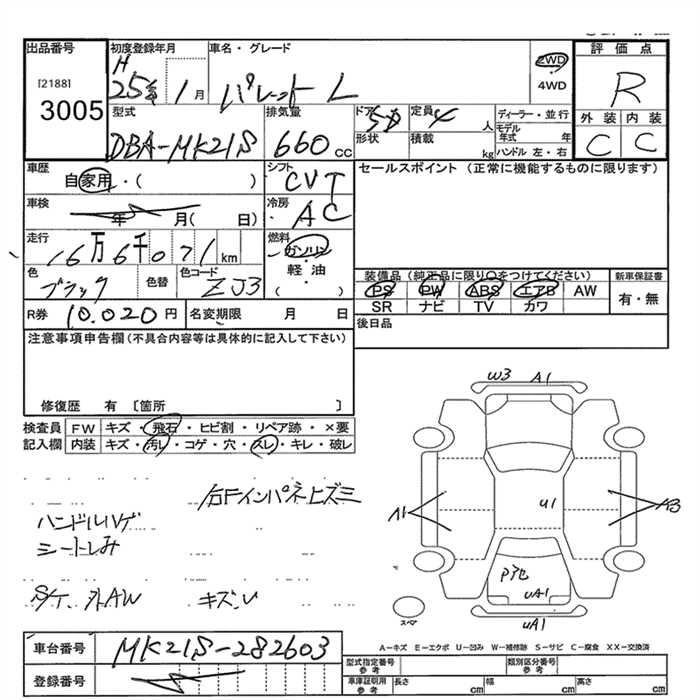 出品番号
[2188]
3005
初度登録年月
H 25年 1月
車名・グレード
パレット L
2WD
4WD
評価点
R
外装 内装
C C
型式
DBA-MK21S
排気量
660 cc
ドア 5D
形状
定員 4 人
積載 kg
ディーラー・並行
モデル年式 年
ハンドル 左・右
車歴
自家用・( )
シフト
CVT
セールスポイント (正常に機能するものに限ります)
車検
年 月( 日)
冷房
AC
走行
16万6千071km
燃料
ガソリン
軽・油
( )
色
ブラック
色替
色コード
ZJ3
装備品 (純正品に限り○をつけてください)
PS PW ABS エアB AW
SR ナビ TV カワ
新車保証書
有・無
R券 10.020円
名変期限 月 日
後日品
注意事項申告欄 (不具合内容等は具体的に記入して下さい)
修復歴 有 〔箇所 〕
検査員記入欄
FW キズ・飛石・ヒビ割・リペア跡・×要
内装 キズ・汚レ・コゲ・穴・スレ・キレ・破レ
右Fインパネヒズミ
ハンドルハゲ
シートしみ
外AW キズ
W3 A1
A1
U1
A3
UA1
UA1
スペア
A－キズ E－エクボ U－凹み W－補修跡 S－サビ C－腐食 XX－交換済
車台番号 MK21S-282603
登録番号
型式指定番号 参考
類別区分番号 参考
車庫証明用 参考
長さ cm
幅 cm
高さ cm